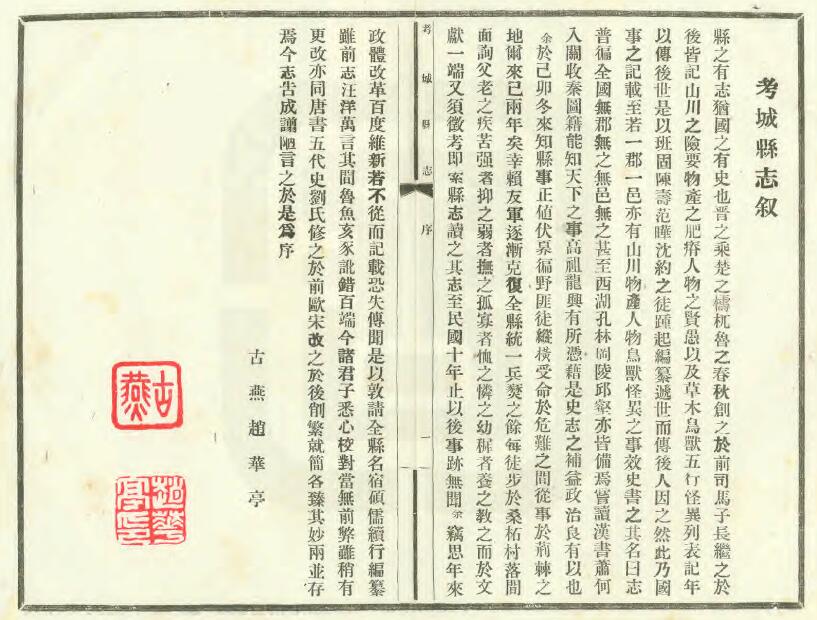 考城縣志叙
縣之有志猶國之有史也晋之乘楚之檮杌魯之春秋創之於前司馬子長繼之於
後皆記山川之險要物產之肥瘠人物之賢愚以及草木鳥獸五行怪異列表記年
以傳後世是以班固陳壽范曄沈約之徒踵起編纂遞世而傳後人因之然此乃國
事之記載至若一郡一邑亦有山川物產人物鳥獸怪異之事效史書之其名曰志
普徧全國無郡無之無邑無之甚至西湖孔林岡陵邱壑亦皆備焉嘗讀漢書蕭何
入關收秦圖籍能知天下之事高祖龍興有所憑藉是史志之補益政治良有以也
余於己卯冬來知縣事正值伏莽徧野匪徒縱橫受命於危難之間從事於荊棘之
地爾來已兩年矣幸賴友軍逐漸克復全縣統一兵燹之餘每徒步於桑柘村落間
面詢父老之疾苦强者抑之弱者撫之孤寡者恤之憐之幼穉者養之教之而於文
獻一端又須徵考即案縣志讀之其志至民國十年止以後事跡無聞余竊思年來
考城縣志 序 一
政體改革百度維新若不從而記載恐失傳聞是以敦請全縣名宿碩儒續行編纂
雖前志汪洋萬言其間魯魚亥豕訛錯百端今諸君子悉心校對當無前弊雖稍有
更改亦同唐書五代史劉氏修之於前歐宋改之於後削繁就簡各臻其妙兩並存
焉今志告成謭陋言之於是爲序
古燕趙華亭
古燕
趙華亭印